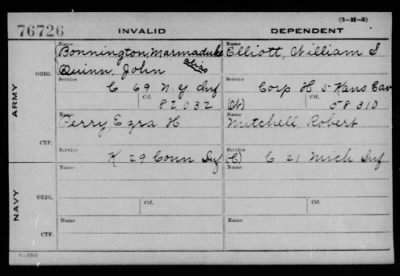 76726 INVALID DEPENDENT (3-H-5)
ARMY ORIG.
Name Bonnington, Marmaduke
alias
Quinn, John
Service C 69 N.Y. Inf
Ctf. 82032
Name Elliott, William S
Service Corp H 5 Kans Cav
(W) Ctf. 58310
CTF.
Name Perry Ezra H
Service K 29 Conn Inf
Name Mitchell Robert
Service (C) C 21 Mich Inf
NAVY ORIG.
Name
Service
Ctf.
Name
Service
Ctf.
CTF.
Name
Name